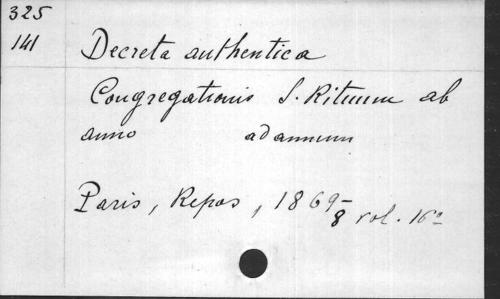 325
141
Decreta authentica
Congregationis S. Rituum ab
anno ad annum
Paris, Repos, 1869-
8 vol. 16º